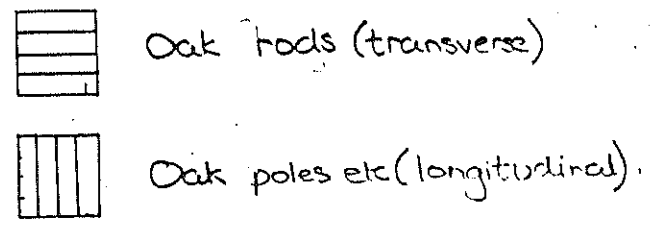 Oak rods (transverse)
Oak poles etc (longitudinal).